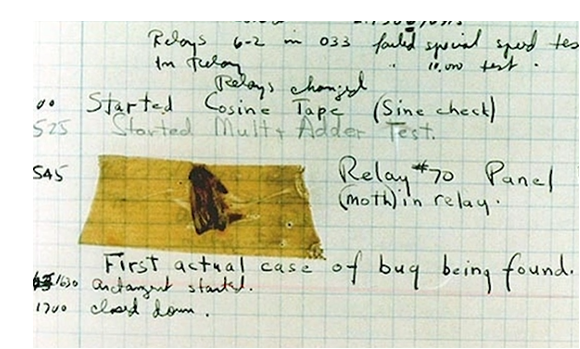 Relays 6-2 in 033 failed special speed tes
in relay " 10,000 test .
Relays changed
00 Started Cosine Tape (Sine check)
525 Started Mult + Adder Test.
545 Relay #70 Panel
(moth) in relay.
First actual case of bug being found.
1630 antangent started.
1700 closed down.